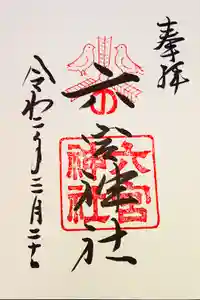 奉拝
六宮神社
六宮神社
令和二年三月二十日